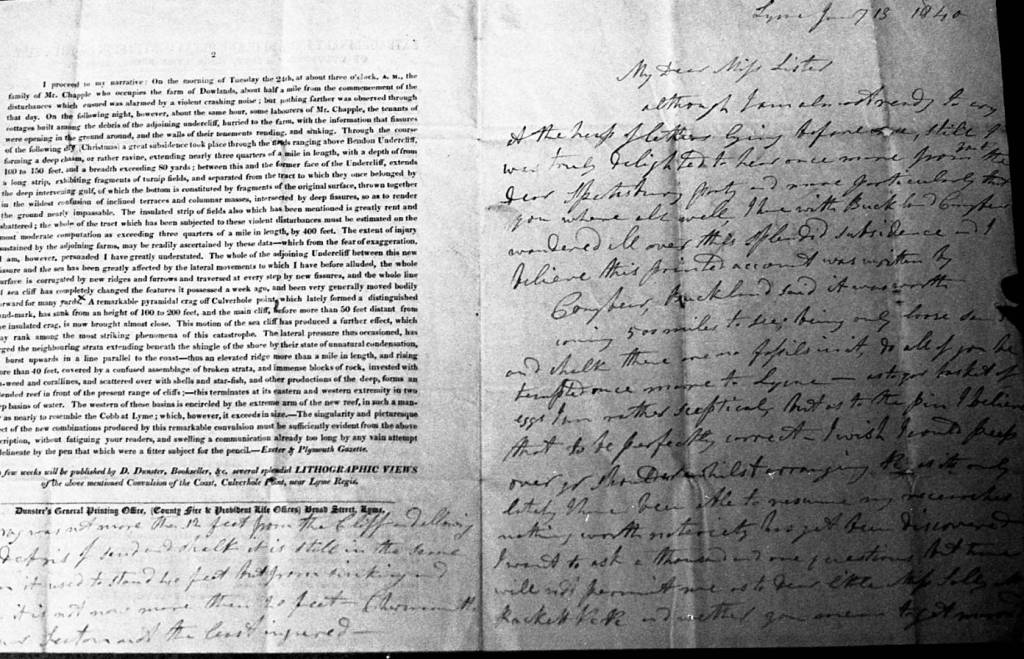 2
I proceed to my narrative: On the morning of Tuesday the 24th, at about three o'clock, A. M., the
family of Mr. Chapple who occupies the farm of Dowlands, about half a mile from the commencement of the
disturbances which ensued was alarmed by a violent crashing noise; but nothing farther was observed through
that day. On the following night, however, about the same hour, some labourers of Mr. Chapple, the tenants of
cottages built among the debris of the adjoining undercliff, hurried to the farm, with the information that fissures
were opening in the ground around, and the walls of their tenements rending, and sinking. Through the course
of the following day (Christmas) a great subsidence took place through the ranging above Bendon Undercliff,
forming a deep chasm, or rather ravine, extending nearly three quarters of a mile in length, with a depth of from
100 to 150 feet, and a breadth exceeding 80 yards; between this and the former face of the Undercliff, extends
a long strip, exhibiting fragments of turnip fields, and separated from the tract to which they once belonged by
the deep intervening gulf, of which the bottom is constituted by fragments of the original surface, thrown together
in the wildest confusion of inclined terraces and columnar masses, intersected by deep fissures, so as to render
the ground nearly impassable. The insulated strip of fields also which has been mentioned is greatly rent and
shattered; the whole of the tract which has been subjected to these violent disturbances must be estimated on the
most moderate computation as exceeding three quarters of a mile in length, by 400 feet. The extent of injury
sustained by the adjoining farms, may be readily ascertained by these data—which from the fear of exaggeration,
I am, however, persuaded I have greatly understated. The whole of the adjoining Undercliff between this new
fissure and the sea has been greatly affected by the lateral movements to which I have before alluded, the whole
surface is corrugated by new ridges and furrows and traversed at every step by new fissures, and the whole line
of sea cliff has completely changed the features it possessed a week ago, and been very generally moved bodily
forward for many yards. A remarkable pyramidal crag off Culverhole point, which lately formed a distinguished
land-mark, has sunk from an height of 100 to 200 feet, and the main cliff, before more than 50 feet distant from
the insulated crag, is now brought almost close. This motion of the sea cliff has produced a further effect, which
may rank among the most striking phenomena of this catastrophe. The lateral pressure thus occasioned, has
urged the neighbouring strata extending beneath the shingle of the shore by their state of unnatural condensation,
burst upwards in a line parallel to the coast—thus an elevated ridge more than a mile in length, and rising
more than 40 feet, covered by a confused assemblage of broken strata, and immense blocks of rock, invested with
-weed and corallines, and scattered over with shells and star-fish, and other productions of the deep, forms an
extended reef in front of the present range of cliffs;—this terminates at its eastern and western extremity in two
deep basins of water. The western of those basins is encircled by the extreme arm of the new reef, in such a man-
as nearly to resemble the Cobb at Lyme; which, however, it exceeds in size.—The singularity and picturesque
of the new combinations produced by this remarkable convulsion must be sufficiently evident from the above
description, without fatiguing your readers, and swelling a communication already too long by any vain attempt
delineate by the pen that which was a fitter subject for the pencil.—Exeter & Plymouth Gazette.
few weeks will be published by D. Dunster, Bookseller, &c. several splendid LITHOGRAPHIC VIEWS
of the above mentioned Convulsion of the Coast, Culverhole Point, near Lyme Regis.
Dunster's General Printing Office, (County Fire & Provident Life Offices) Broad Street, Lyme.
was not more then 12 feet from the Cliff and allowing
debris of sand and chalk it is still in the same
it used to stand feet but from sinking and
it is not now more then 20 feet
not the least injured—
Lyme 13 1840
My Dear Miss Lister
although I am almost ready to cry
At the heap of letters lying before me still I
was truly delighted to hear once more from the
dear party and more particularly that
you where all well I have with Buckland Conybear
wandered all over this splendid subsidence and I
believe this printed account was written by
Conybear, Buckland said it was worth
coming 500 miles to see, being only loose sand
and chalk there are no fossils in it, do all of you be
tempted once more to Lyme as to your basket of
eggs I am rather sceptical but as to the I believe
that to be perfectly correct—I wish I could peep
over your shoulder whilst arranging it is only
lately I have been able to resume my researches
nothing worth has yet been discovered
I want to ask a thousand and one questions but time
will not permit me as to dear little Miss
and whether you